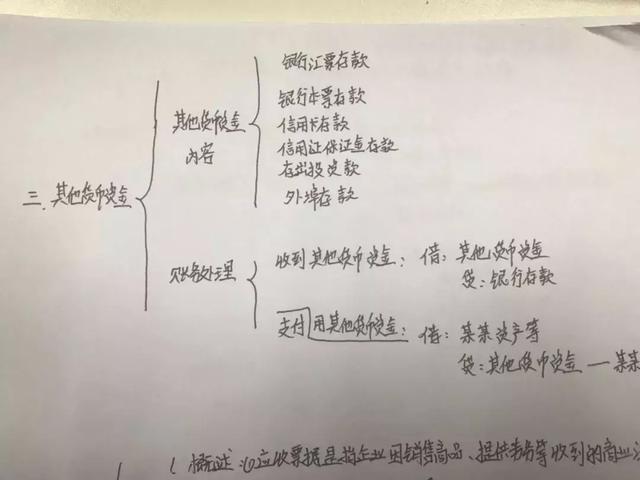 银行汇票存款
银行本票存款
其他货币资金
信用卡存款
内容
信用证保证金存款
存出投资款
三、其他货币资金
外埠存款
收到其他货币资金：借：其他货币资金
账务处理
贷：银行存款
支付用其他货币资金：借：某某资产等
贷：其他货币资金——某某
概述：①应收票据是指企业因销售商品、提供劳务等收到的商业